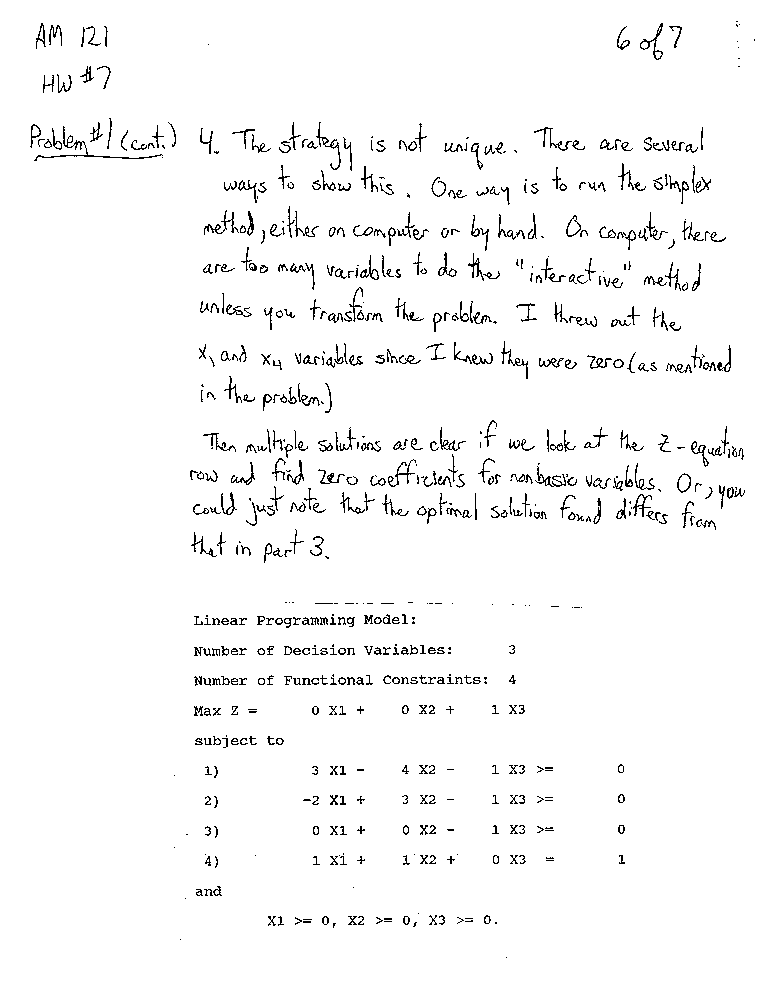 AM 121
6 of 7
HW #7
Problem #1 (cont.) 4. The strategy is not unique. There are several
ways to show this. One way is to run the simplex
method, either on computer or by hand. On computer, there
are too many variables to do the "interactive" method
unless you transform the problem. I threw out the
x₁ and x₄ variables since I knew they were zero (as mentioned
in the problem.)
Then multiple solutions are clear if we look at the Z-equation
row and find zero coefficients for nonbasic variables. Or, you
could just note that the optimal solution found differs from
that in part 3.
Linear Programming Model:
Number of Decision Variables: 3
Number of Functional Constraints: 4
Max Z = 0 X1 + 0 X2 + 1 X3
subject to
1) 3 X1 - 4 X2 - 1 X3 >= 0
2) -2 X1 + 3 X2 - 1 X3 >= 0
3) 0 X1 + 0 X2 - 1 X3 >= 0
4) 1 X1 + 1 X2 + 0 X3 = 1
and
X1 >= 0, X2 >= 0, X3 >= 0.